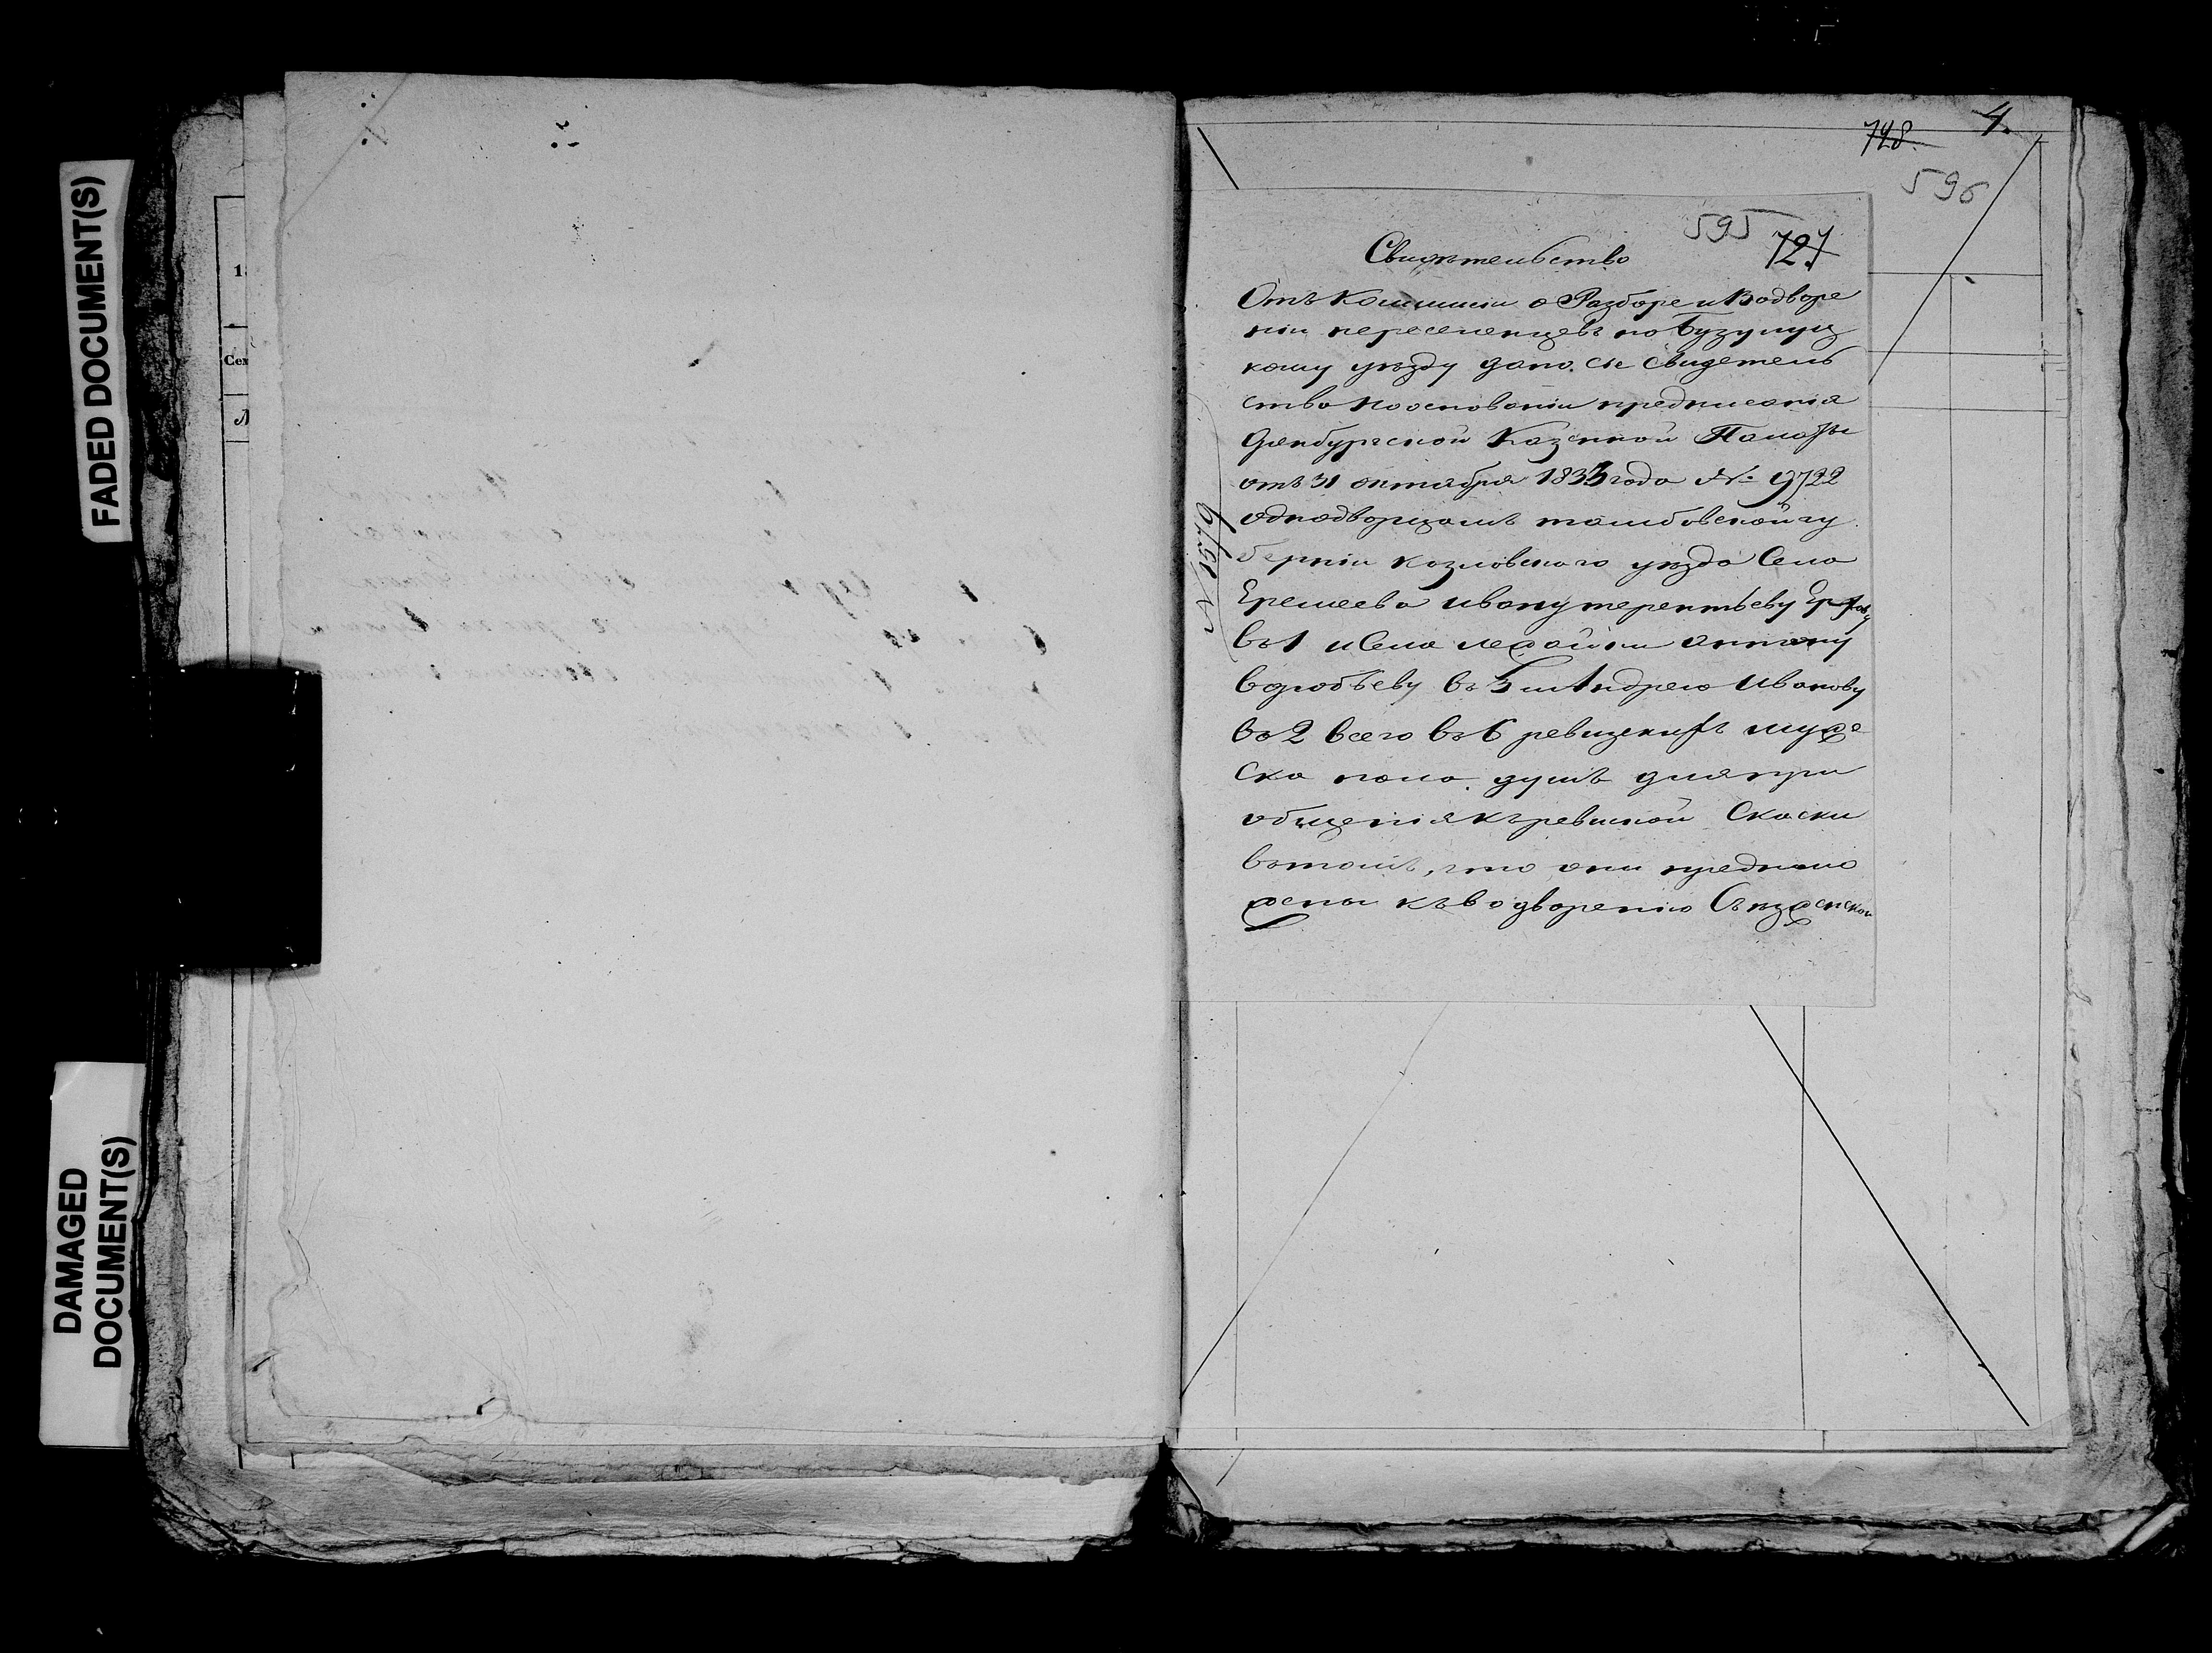 FADED DOCUMENT(S)
DAMAGED
DOCUMENT(S)
4.
728.
596
595
727
Свидѣтельство
Отъ Коммисіи о Разборе и Водворе
ніи переселенцевъ по Бузулуц
кому уѣзду дано сіе свидетель
ство на основаніи предписанія
Оренбургской Казенной Палаты
отъ 31 октября 1833 года № 9722
однодворцамъ тамбовской гу
берніи козловскаго уѣзда Села
Еремеева ивану терентьеву
въ 1 и Села
въ 3 и Андрею Иванову
въ 2 всего въ 6 ревизскихъ муже
ска пола душъ для при
общенія къ ревиской Скаски
въ томъ, что они предполо
жены къ водворенію
№ 1579